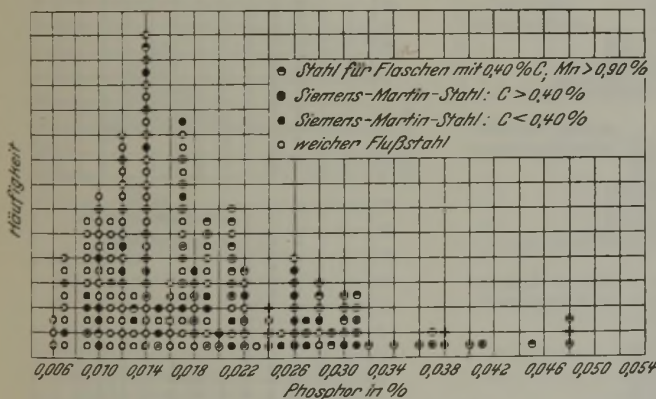 Stahl für Flaschen mit 0,40%C, Mn>0,90%
Siemens-Martin-Stahl: C>0,40%
Siemens-Martin-Stahl: C<0,40%
weicher Flußstahl
Häufigkeit
0,006 0,010 0,014 0,018 0,022 0,026 0,030 0,034 0,038 0,042 0,046 0,050 0,054
Phosphor in %